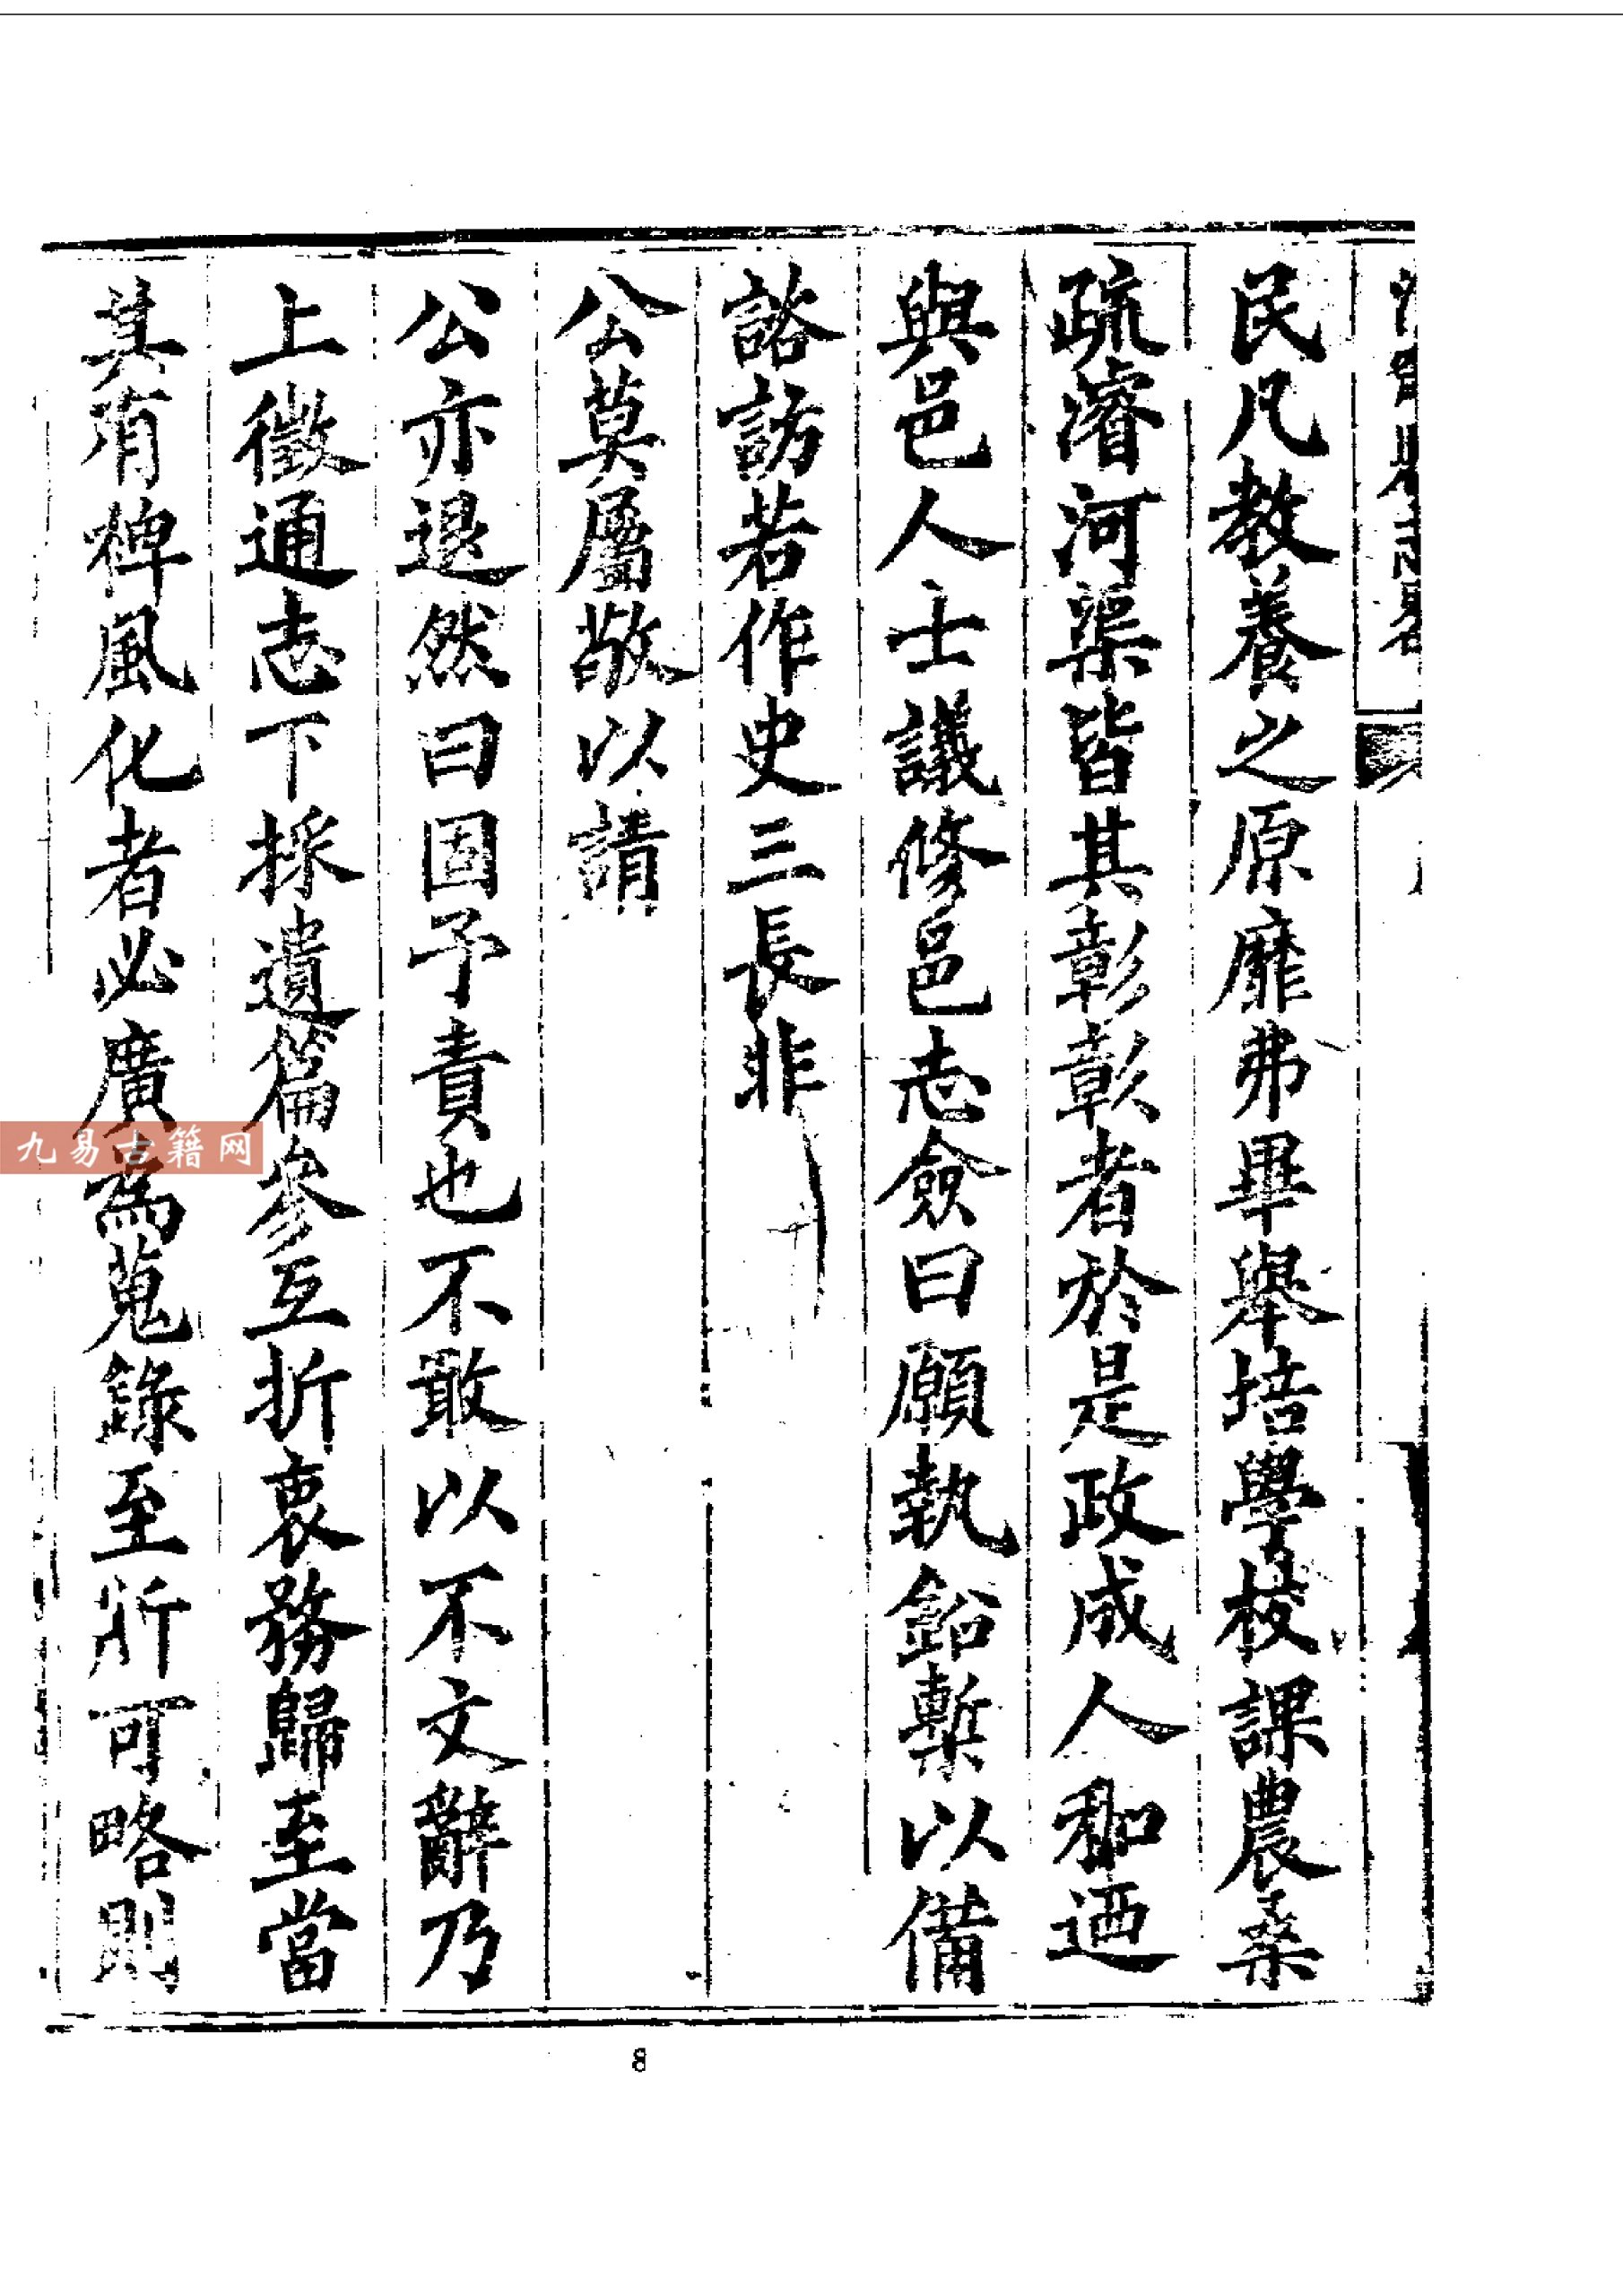 民凡教養之原靡弗畢舉培學校課農桑
疏濬河渠皆其彰彰者於是政成人和迺
與邑人士議修邑志僉曰願執鉛槧以備
諮訪若作史三長非
公莫屬敬以請
公亦退然曰固予責也不敢以不文辭乃
上徵通志下採遺篇參互折衷務歸至當
其有裨風化者必廣為蒐錄至所可略則
九易古籍网
8